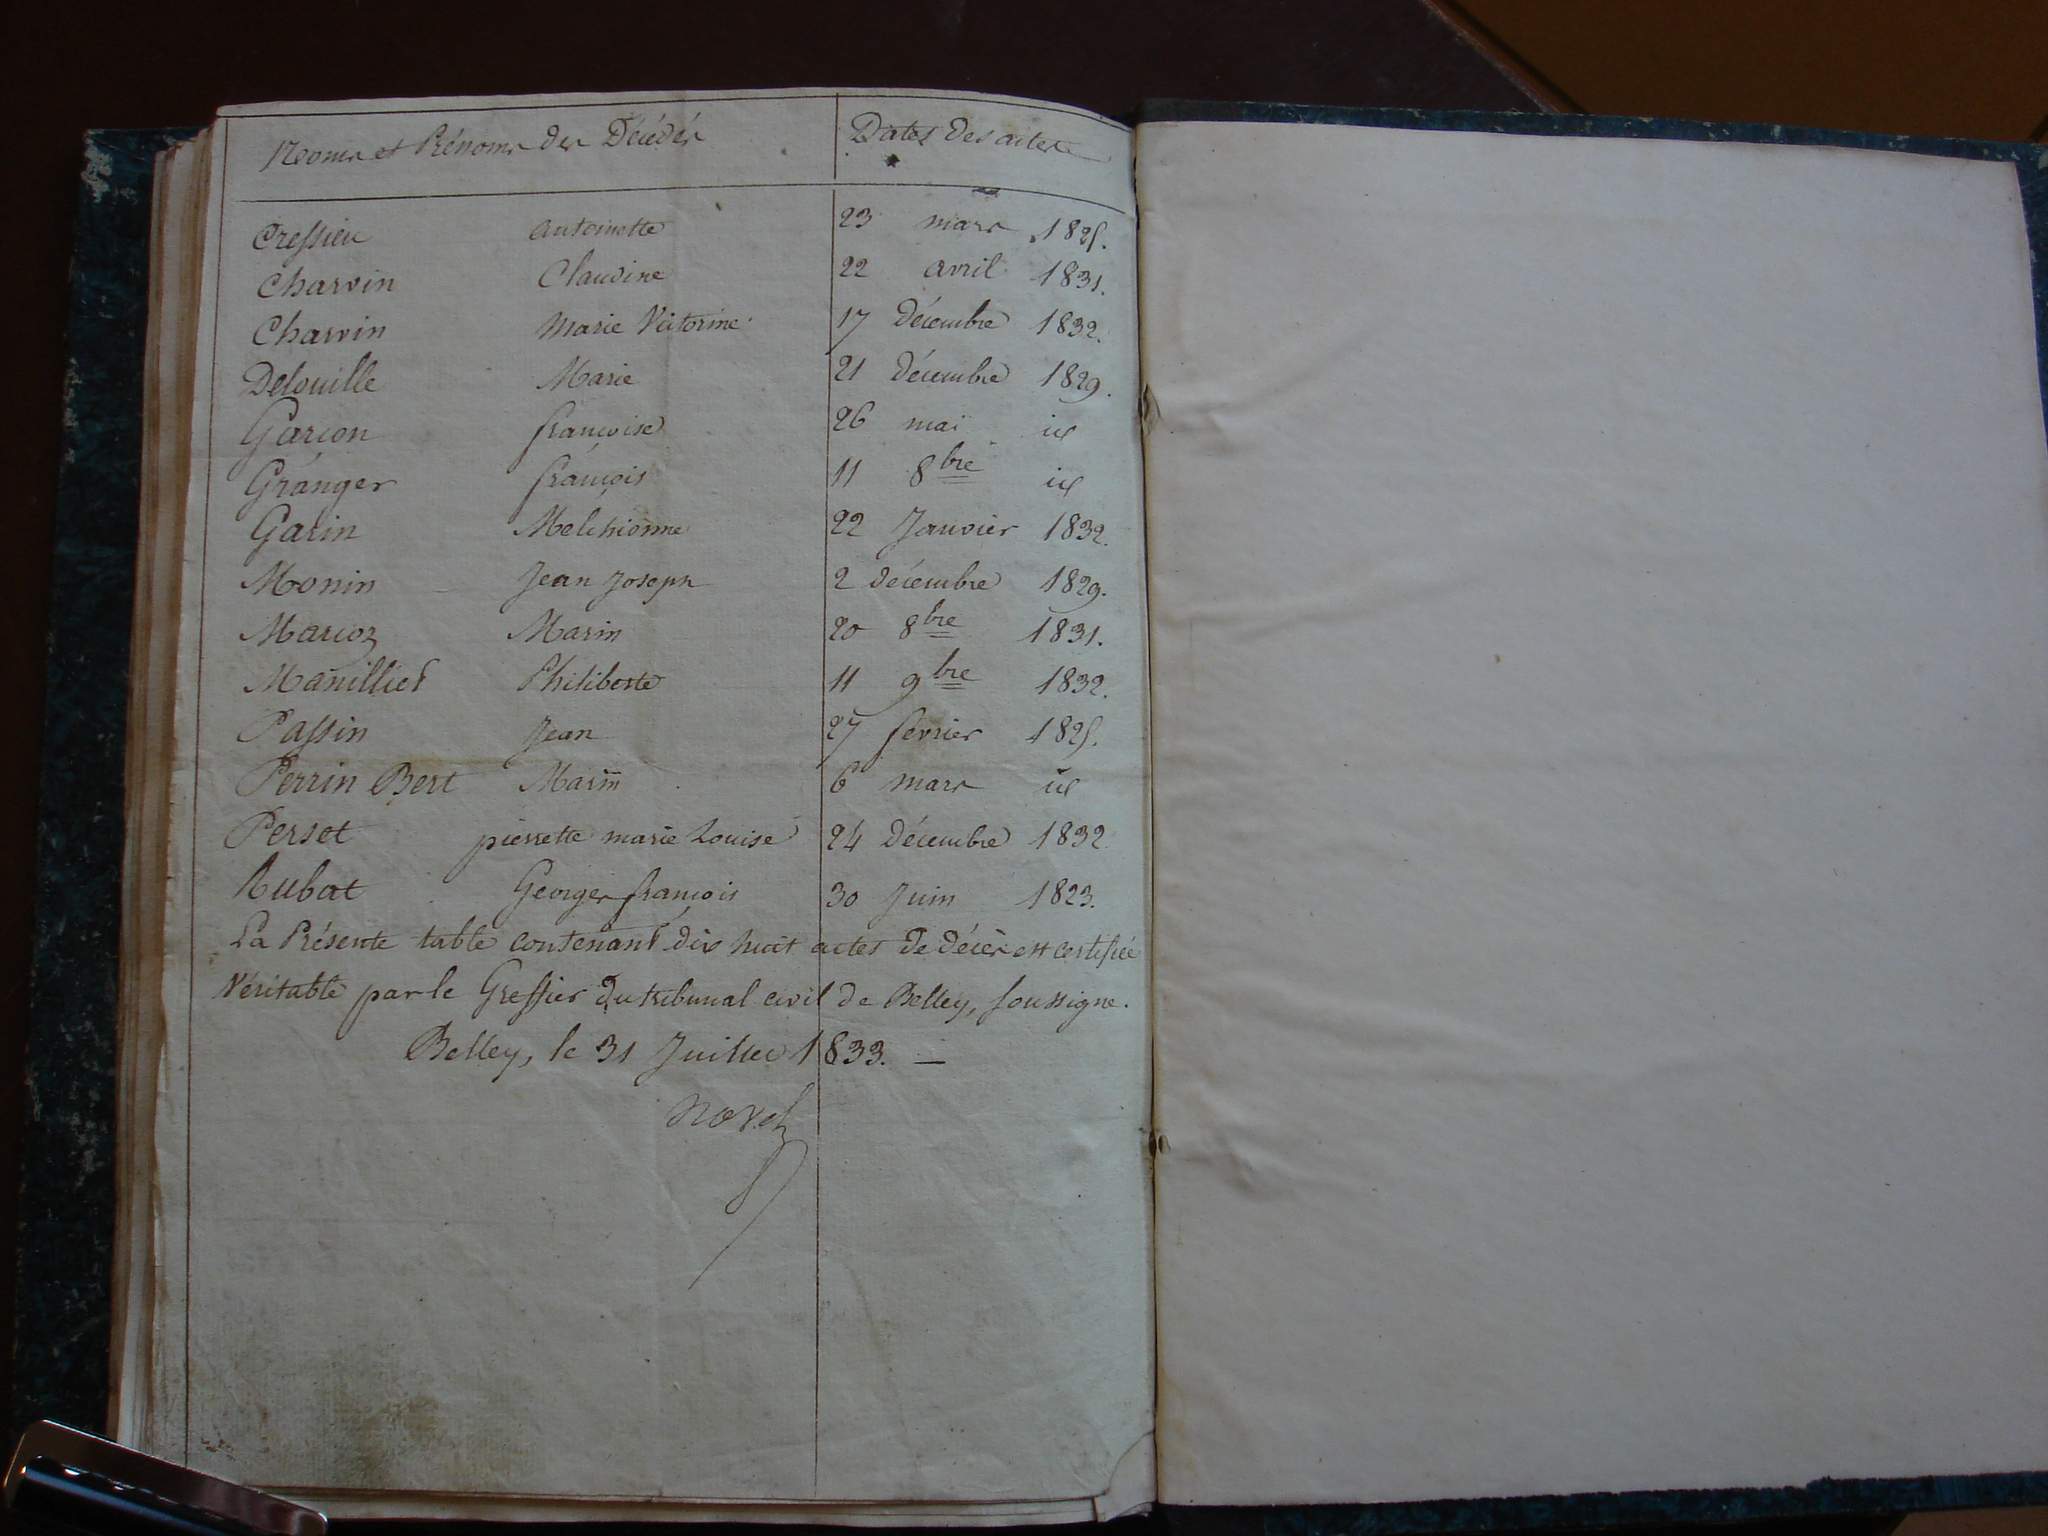 Noms et Prénoms des Décédés Dates des actes
Cressieu Antoinette 23 mars 1825.
Charvin Claudine 22 avril 1831.
Charvin Marie Victorine 17 décembre 1832.
Delouille Marie 21 décembre 1829.
Garçon françoise 26 mai id
Granger françois 11 8bre id
Garin Melchionne 22 Janvier 1832.
Monin Jean Joseph 2 décembre 1829.
Marcoz Marin 20 8bre 1831.
Manilliet Philiberte 11 9bre 1832.
Passin Jean 27 fevrier 1825.
Perrin Bert Marin 6 mars id
Perset pierrette marie Louise 24 décembre 1832
Rubat George françois 30 Juin 1823.
La Présente table contenant dix huit actes de décès est certifiée
Véritable par le Greffier du tribunal civil de Belley, soussigné.
Belley, le 31 Juillet 1833. —